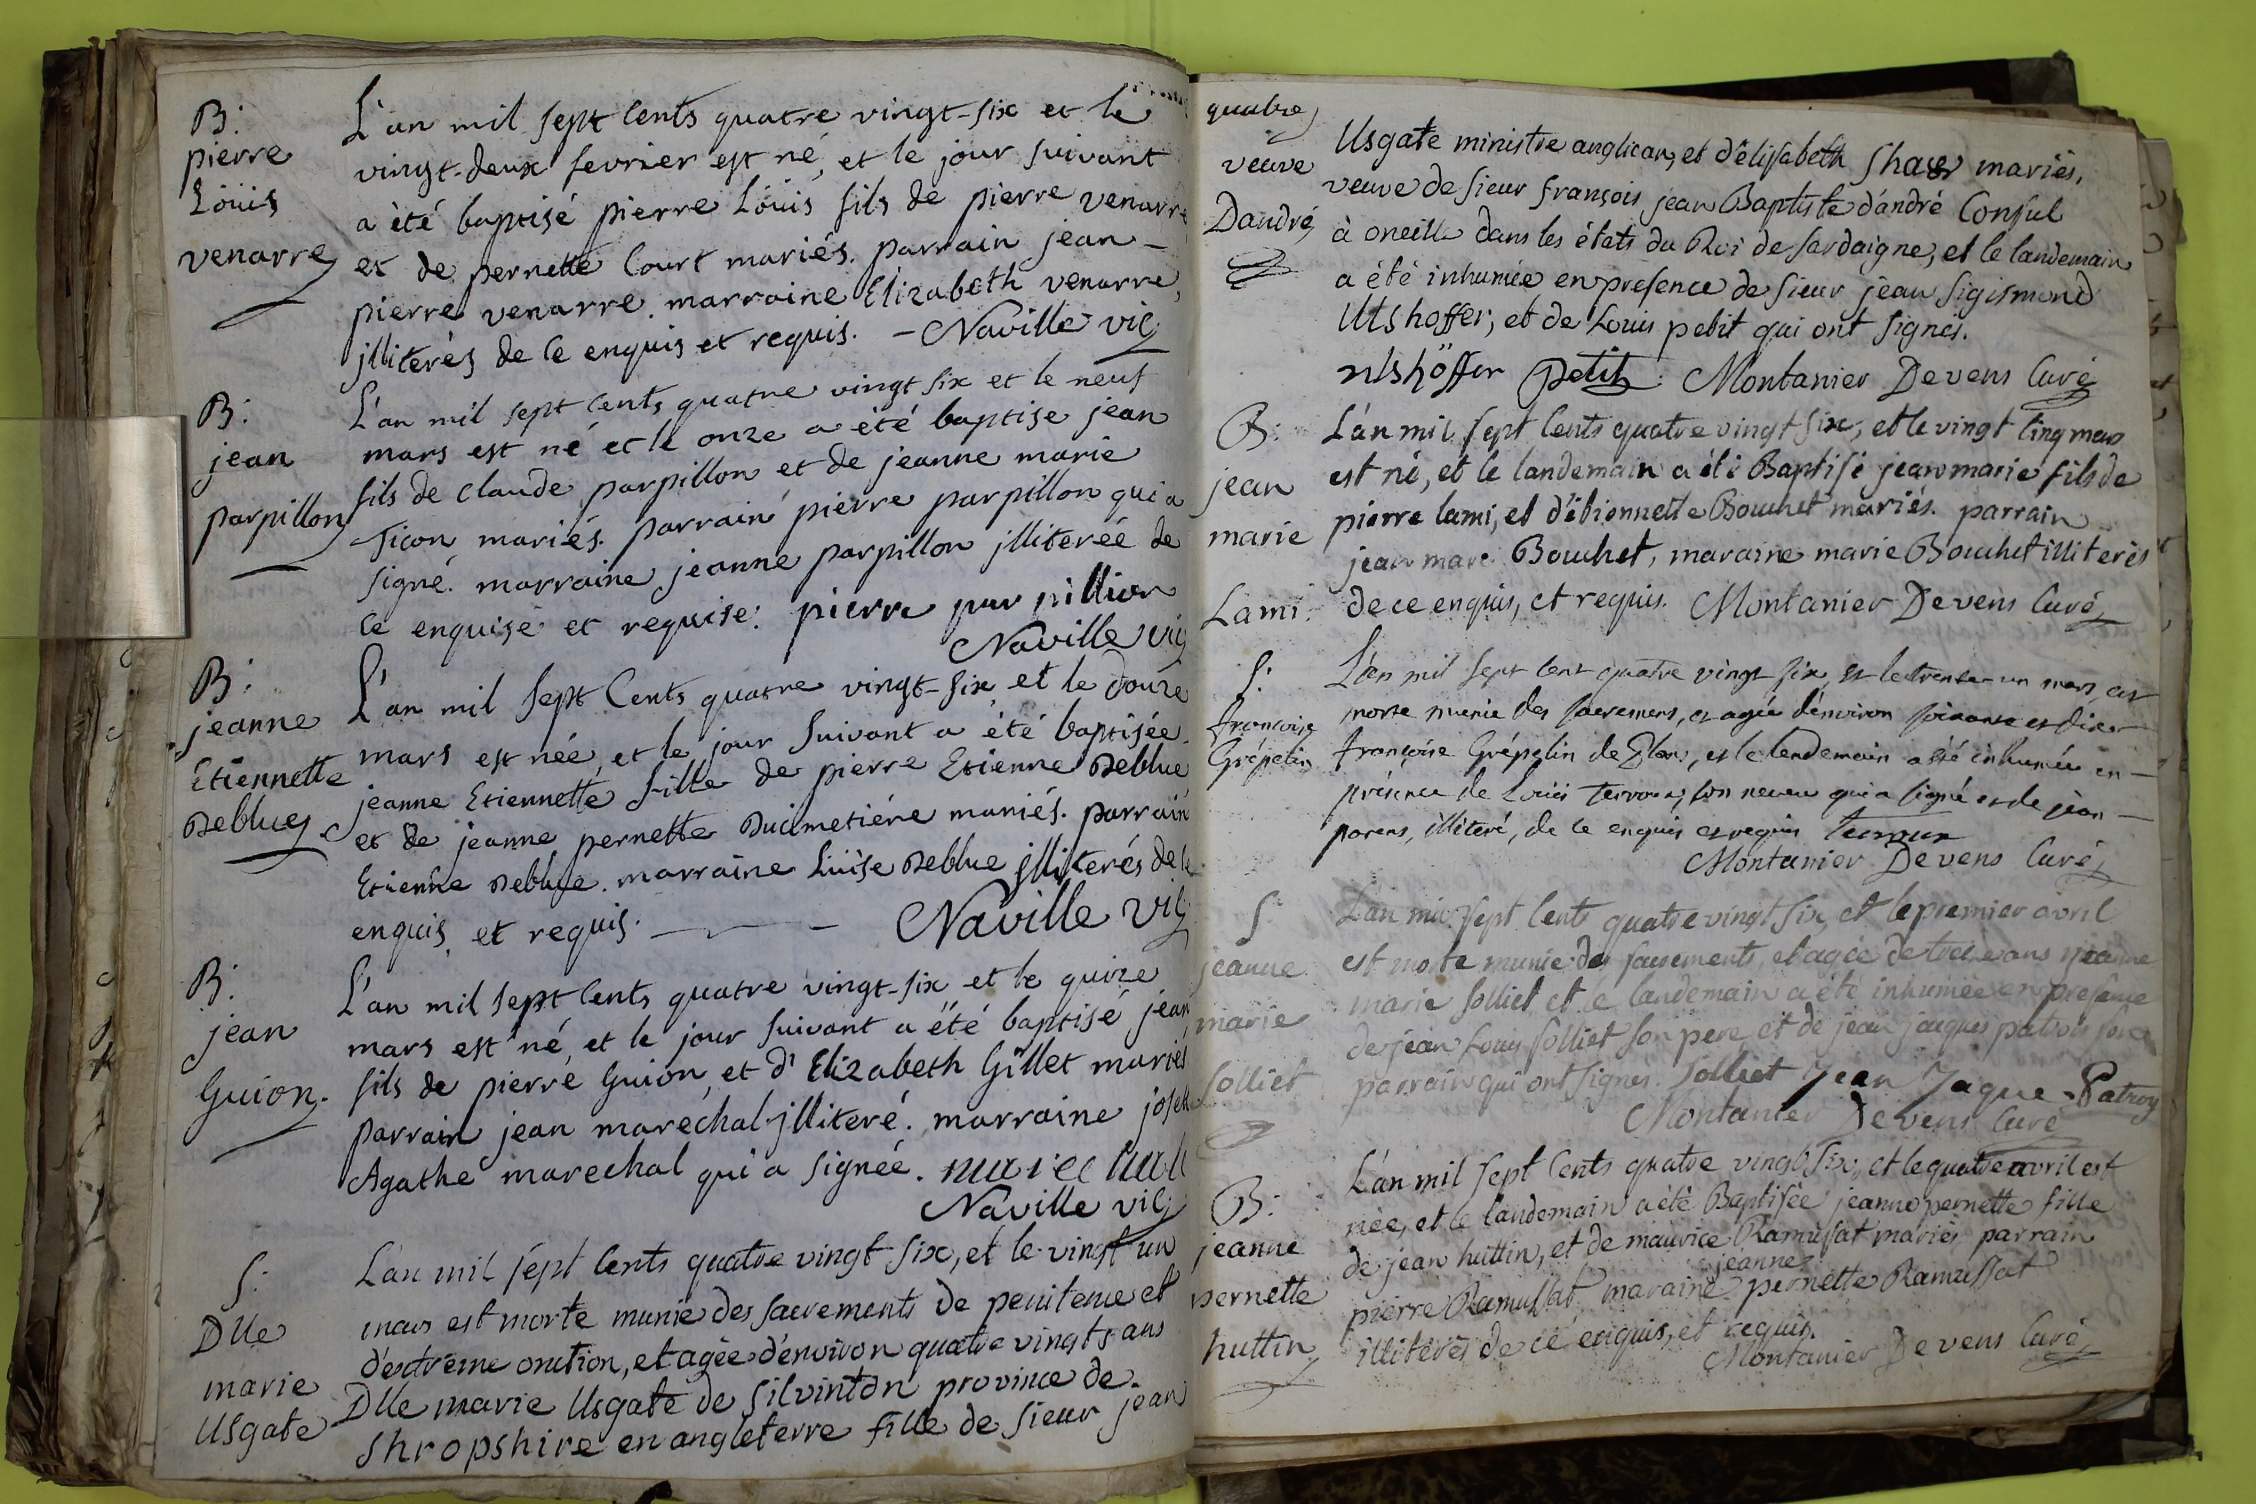 B:
pierre
Loüis
venarre
L'an mil sept cents quatre vingt-six et le
vingt-deux fevrier est né, et le jour suivant
a été baptisé pierre Loüis fils de pierre venarre
et de pernette Court mariés. parrain jean
pierre venarre. marraine Elizabeth venarre,
jlliterés de ce enquis et requis. - Naville vic
B:
jean
parpillon
L'an mil sept cents quatre vingt six et le neuf
mars est né et le onze a été baptise jean
fils de claude parpillon et de jeanne marie
Ticon mariés. parrain pierre parpillon qui a
signé. marraine jeanne parpillon jlliterée de
ce enquise et requise: pierre par pillion
Naville vic
B:
jeanne
Etiennette
Deblue
L'an mil sept Cents quatre vingt-six et le douze
mars est née, et le jour suivant a été baptisée
jeanne Etiennette fille de pierre Etienne Deblue
et de jeanne pernette Ducimetiére mariés. parrain
Etienne Deblue. marraine Luise Deblue jlliterés de ce
enquis et requis. - Naville vic
B:
jean
Guion.
L'an mil sept cents quatre vingt-six et le quize
mars est né, et le jour suivant a été baptisé jean
fils de pierre Guion, et d'Elizabeth Gillet mariés
parrain jean maréchal jlliteré. marraine joseph
Agathe marechal qui a signée.
Naville vic
S:
Dlle
marie
Usgate
L'an mil sépt cents quatre vingt six, et le vingt un
mars est morte munie des sacrements de penitence et
d'extrême onction, et agée d'environ quatre vingts ans
Dlle marie Usgate de Silvinton province de
Shropshire en angleterre fille de sieur jean
quatre
veuve
Dandré
Usgate ministre anglican, et d'élisabeth Shaer mariés,
veuve de sieur françois jean Baptiste d'andré Consul
à oneille dans les états du Roi de sardaigne, et le landemain
a été inhumée en presence de sieur jean Sigismond
Ulshoffer, et de Louis petit qui ont signés.
ulshöffer Petit: Montanier Devens Curé
B:
jean
marie
Lami.
L'an mil sept cents quatre vingt six, et le vingt cinq mars
est né, et le landemain a été Baptisé jean marie fils de
pierre lami, et d'étiennette Bouchet mariés. parrain
jean marc Bouchet, maraine marie Bouchet illiterés
de ce enquis, et requis. Montanier Devens Curé
S:
françoise
Grépelin
L'an mil sept cent quatre vingt six, et le trente un mars, est
morte munie des sacremens, et agée d'environ soixante et dix
françoise Grépelin de, et le lendemain a été inhumée en
présence de Louis Terroux, son neveu qui a signé et de jean
parens, illiteré, de ce enquis et requis Terroux
Montanier Devens Curé
S
jeanne
marie
solliet
L'an mil sept cents quatre vingt six, et le premier avril
est morte munie des sacrements, et agée de treze ans jeanne
marie solliet et le landemain a été inhumée en presence
de jean Louis solliet son pere, et de jean jacques patroi son
parrain qui ont signés. Solliet Jean Jaque Patroy
Montanier Devens Curé
B:
jeanne
pernette
huttin
L'an mil sept cents quatre vingt six, et le quatre avril est
née, et le landemain a été Baptisée jeanne pernette fille
de jean huttin, et de maurice Ramussat mariés parrain
pierre Ramussat, maraine jeanne pernette Ramussat
illiterés de ce enquis, et requis.
Montanier Devens Curé